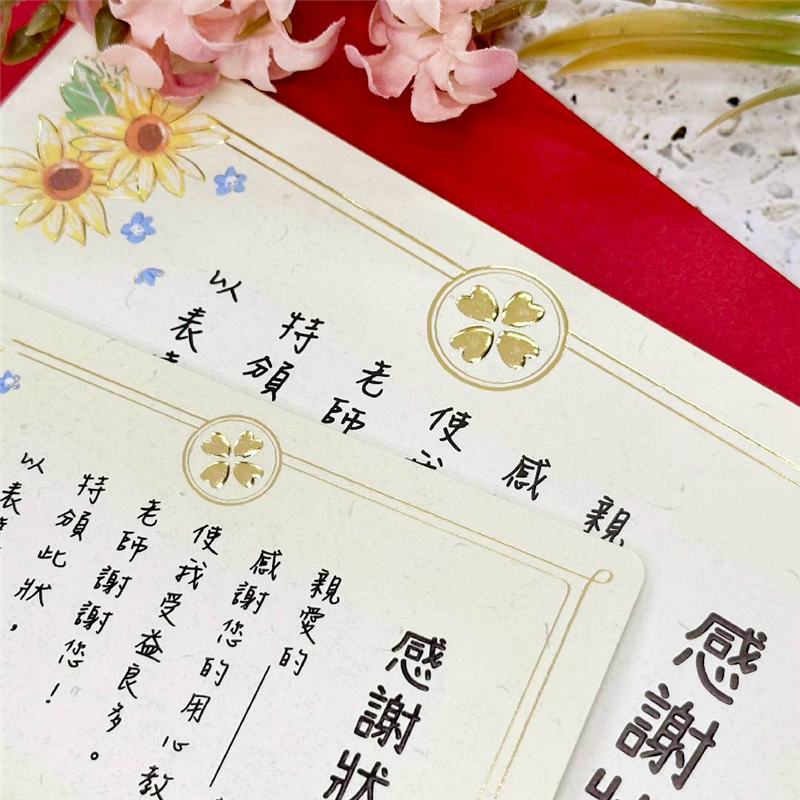 感謝狀
親愛的
感謝您的用心教
使我受益良多。
老師謝謝您！
特頒此狀，
以表
感謝
親
感
使我
老師
特頒
以表